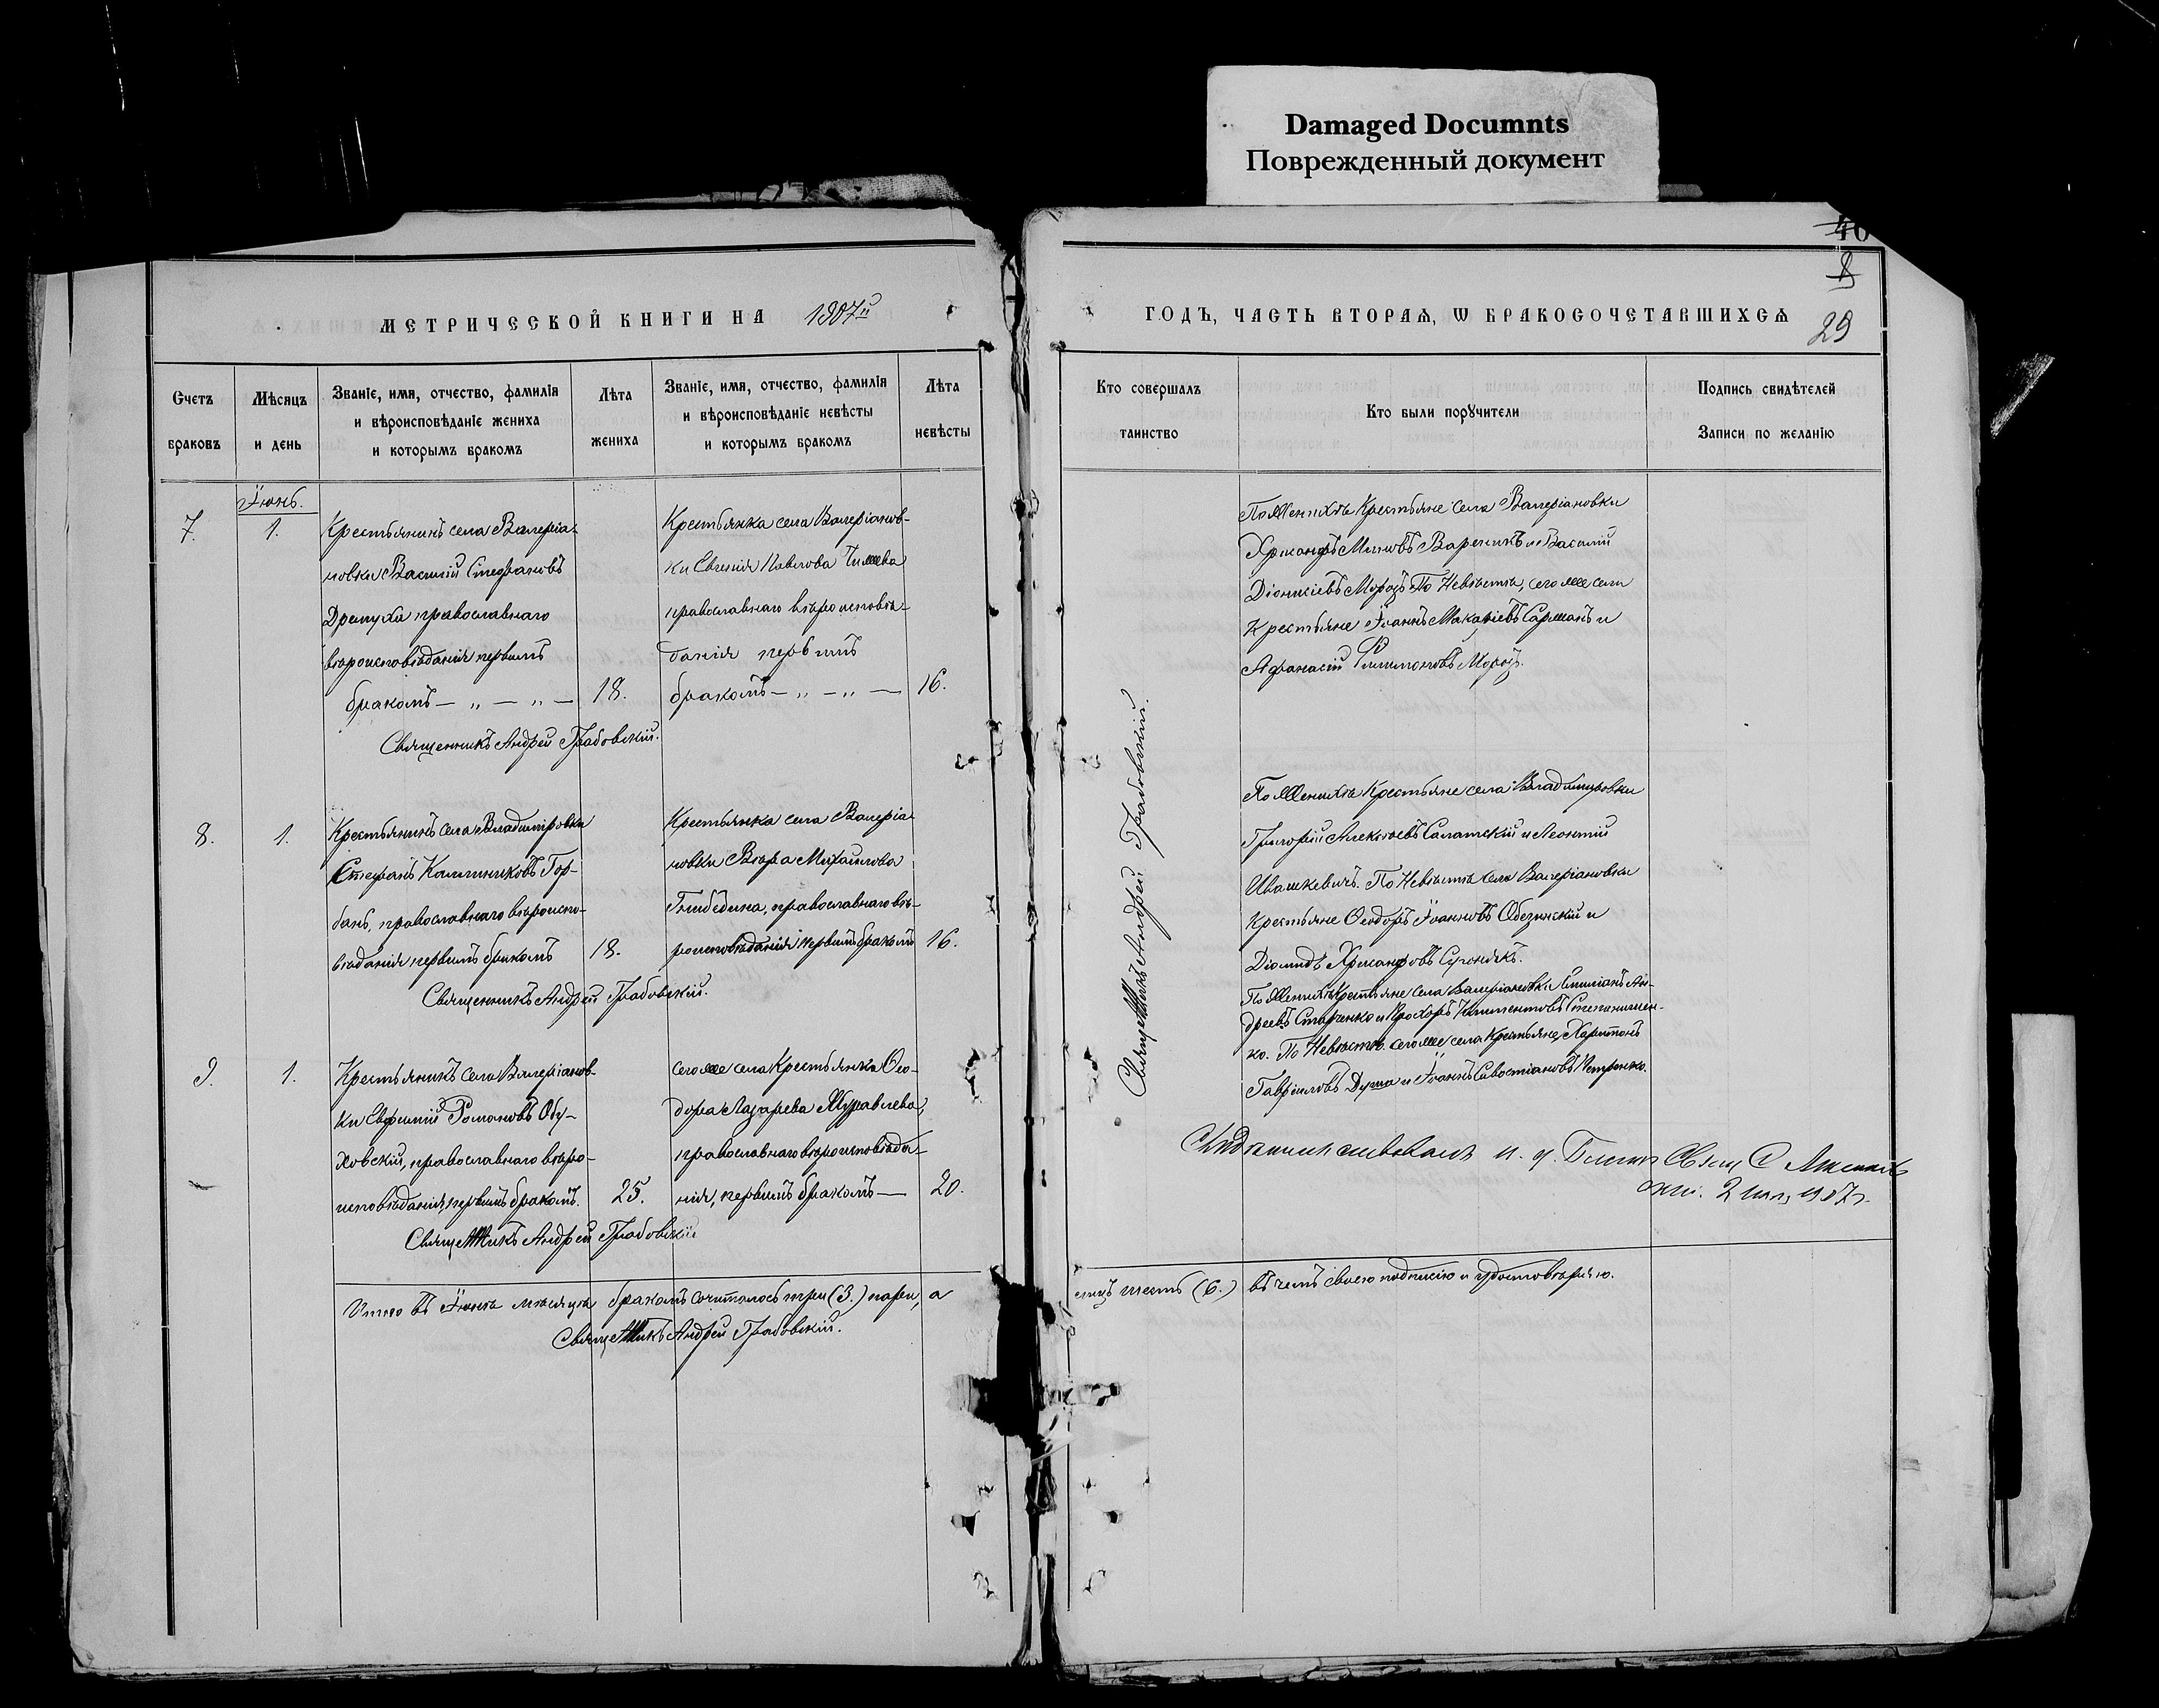 Damaged Documnts
Поврежденный документ
40
8
29
МЕТРИЧЕСКОЙ КНИГИ НА 1907й
ГОДЪ, ЧАСТЬ ВТОРАѦ, Ѡ БРАКОСОЧЕТАВШИХСѦ
Счетъ
браковъ
Мѣсяцъ
и день
Званіе, имя, отчество, фамилія
и вѣроисповѣданіе жениха
и которымъ бракомъ
Лѣта
жениха
Званіе, имя, отчество, фамилія
и вѣроисповѣданіе невѣсты
и которымъ бракомъ
Лѣта
невѣсты
Кто совершалъ
таинство
Кто были порꙋчители
Подпись свидѣтелей
Записи по желанію
Іюнь.
7.
1.
Крестьянинъ села Валеріа-
новки Василій Стефановъ
православнаго
вѣроисповѣданія первымъ
бракомъ — „ — „ —
18.
Крестьянка села Валеріанов-
ки Евгенія Павлова
православнаго вѣроисповѣ-
данія первымъ
бракомъ — „ — „ —
16.
Священникъ Андрей Грабовскій.
По Женихѣ Крестьяне села Валеріановки
Хрисанфъ Вареникъ и Василій
Діонисіевъ Морозъ По Невѣстѣ, сего же села
Крестьяне Іоаннъ Макаріевъ Сарманъ и
Афанасій Филимоновъ Морозъ.
8.
1.
Крестьянинъ села Владимировки
Стефанъ Каллиниковъ Гор-
бань, православнаго вѣроиспо-
вѣданія первымъ бракомъ
18.
Крестьянка села Валеріа-
новки Вѣра Михаилова
православнаго вѣ-
роисповѣданія первымъ бракомъ
16.
Священникъ Андрей Грабовскій.
По Женихѣ Крестьяне села Владимировки
Григорій Алексѣевъ Салатскій и Леонтій
Ивашкевичъ. По Невѣстѣ села Валеріановки
Крестьяне Ѳеодоръ Іоанновъ Обезинскій и
Діомидъ Хрисанфовъ
9.
1.
Крестьянинъ села Валеріанов-
ки Евфимій Романовъ Обу-
ховскій, православнаго вѣро-
исповѣданія, первымъ бракомъ.
25.
сего же села Крестьянка Ѳео-
дора Лазарева Журавлева,
православнаго вѣроисповѣда-
нія, первымъ бракомъ —
20.
Священникъ Андрей Грабовскій
По Женихѣ Крестьяне села Валеріановки Ан-
дреевъ Старченко и Прохоръ Климентовъ
ко. По Невѣстѣ. сего же села Крестьяне Харитонъ
Гавріиловъ Душа и Іоаннъ Савостіановъ Петренко.
Священникъ Андрей Грабовскій.
и. д. Благоч. Свящ. С.
2 1907 г.
Итого въ Іюнѣ мѣсяцѣ бракомъ сочиталось три (3.) пары, а
лицъ шесть (6.) въ чемъ своею подписью и удостовѣряю.
Священникъ Андрей Грабовскій.